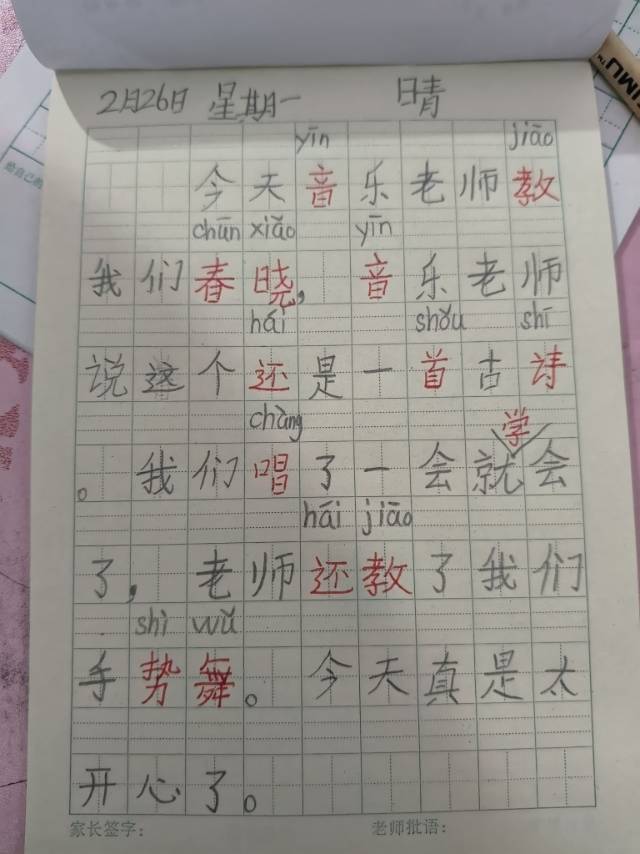 2月26日 星期一 晴
yīn jiāo
今天音乐老师教
chūn xiǎo yīn
我们春晓，音乐老师
hái shǒu shī
说这个还是一首古诗
chàng 学
。我们唱了一会就会
hái jiāo
了，老师还教了我们
shì wǔ
手势舞。今天真是太
开心了。
家长签字： 老师批语：